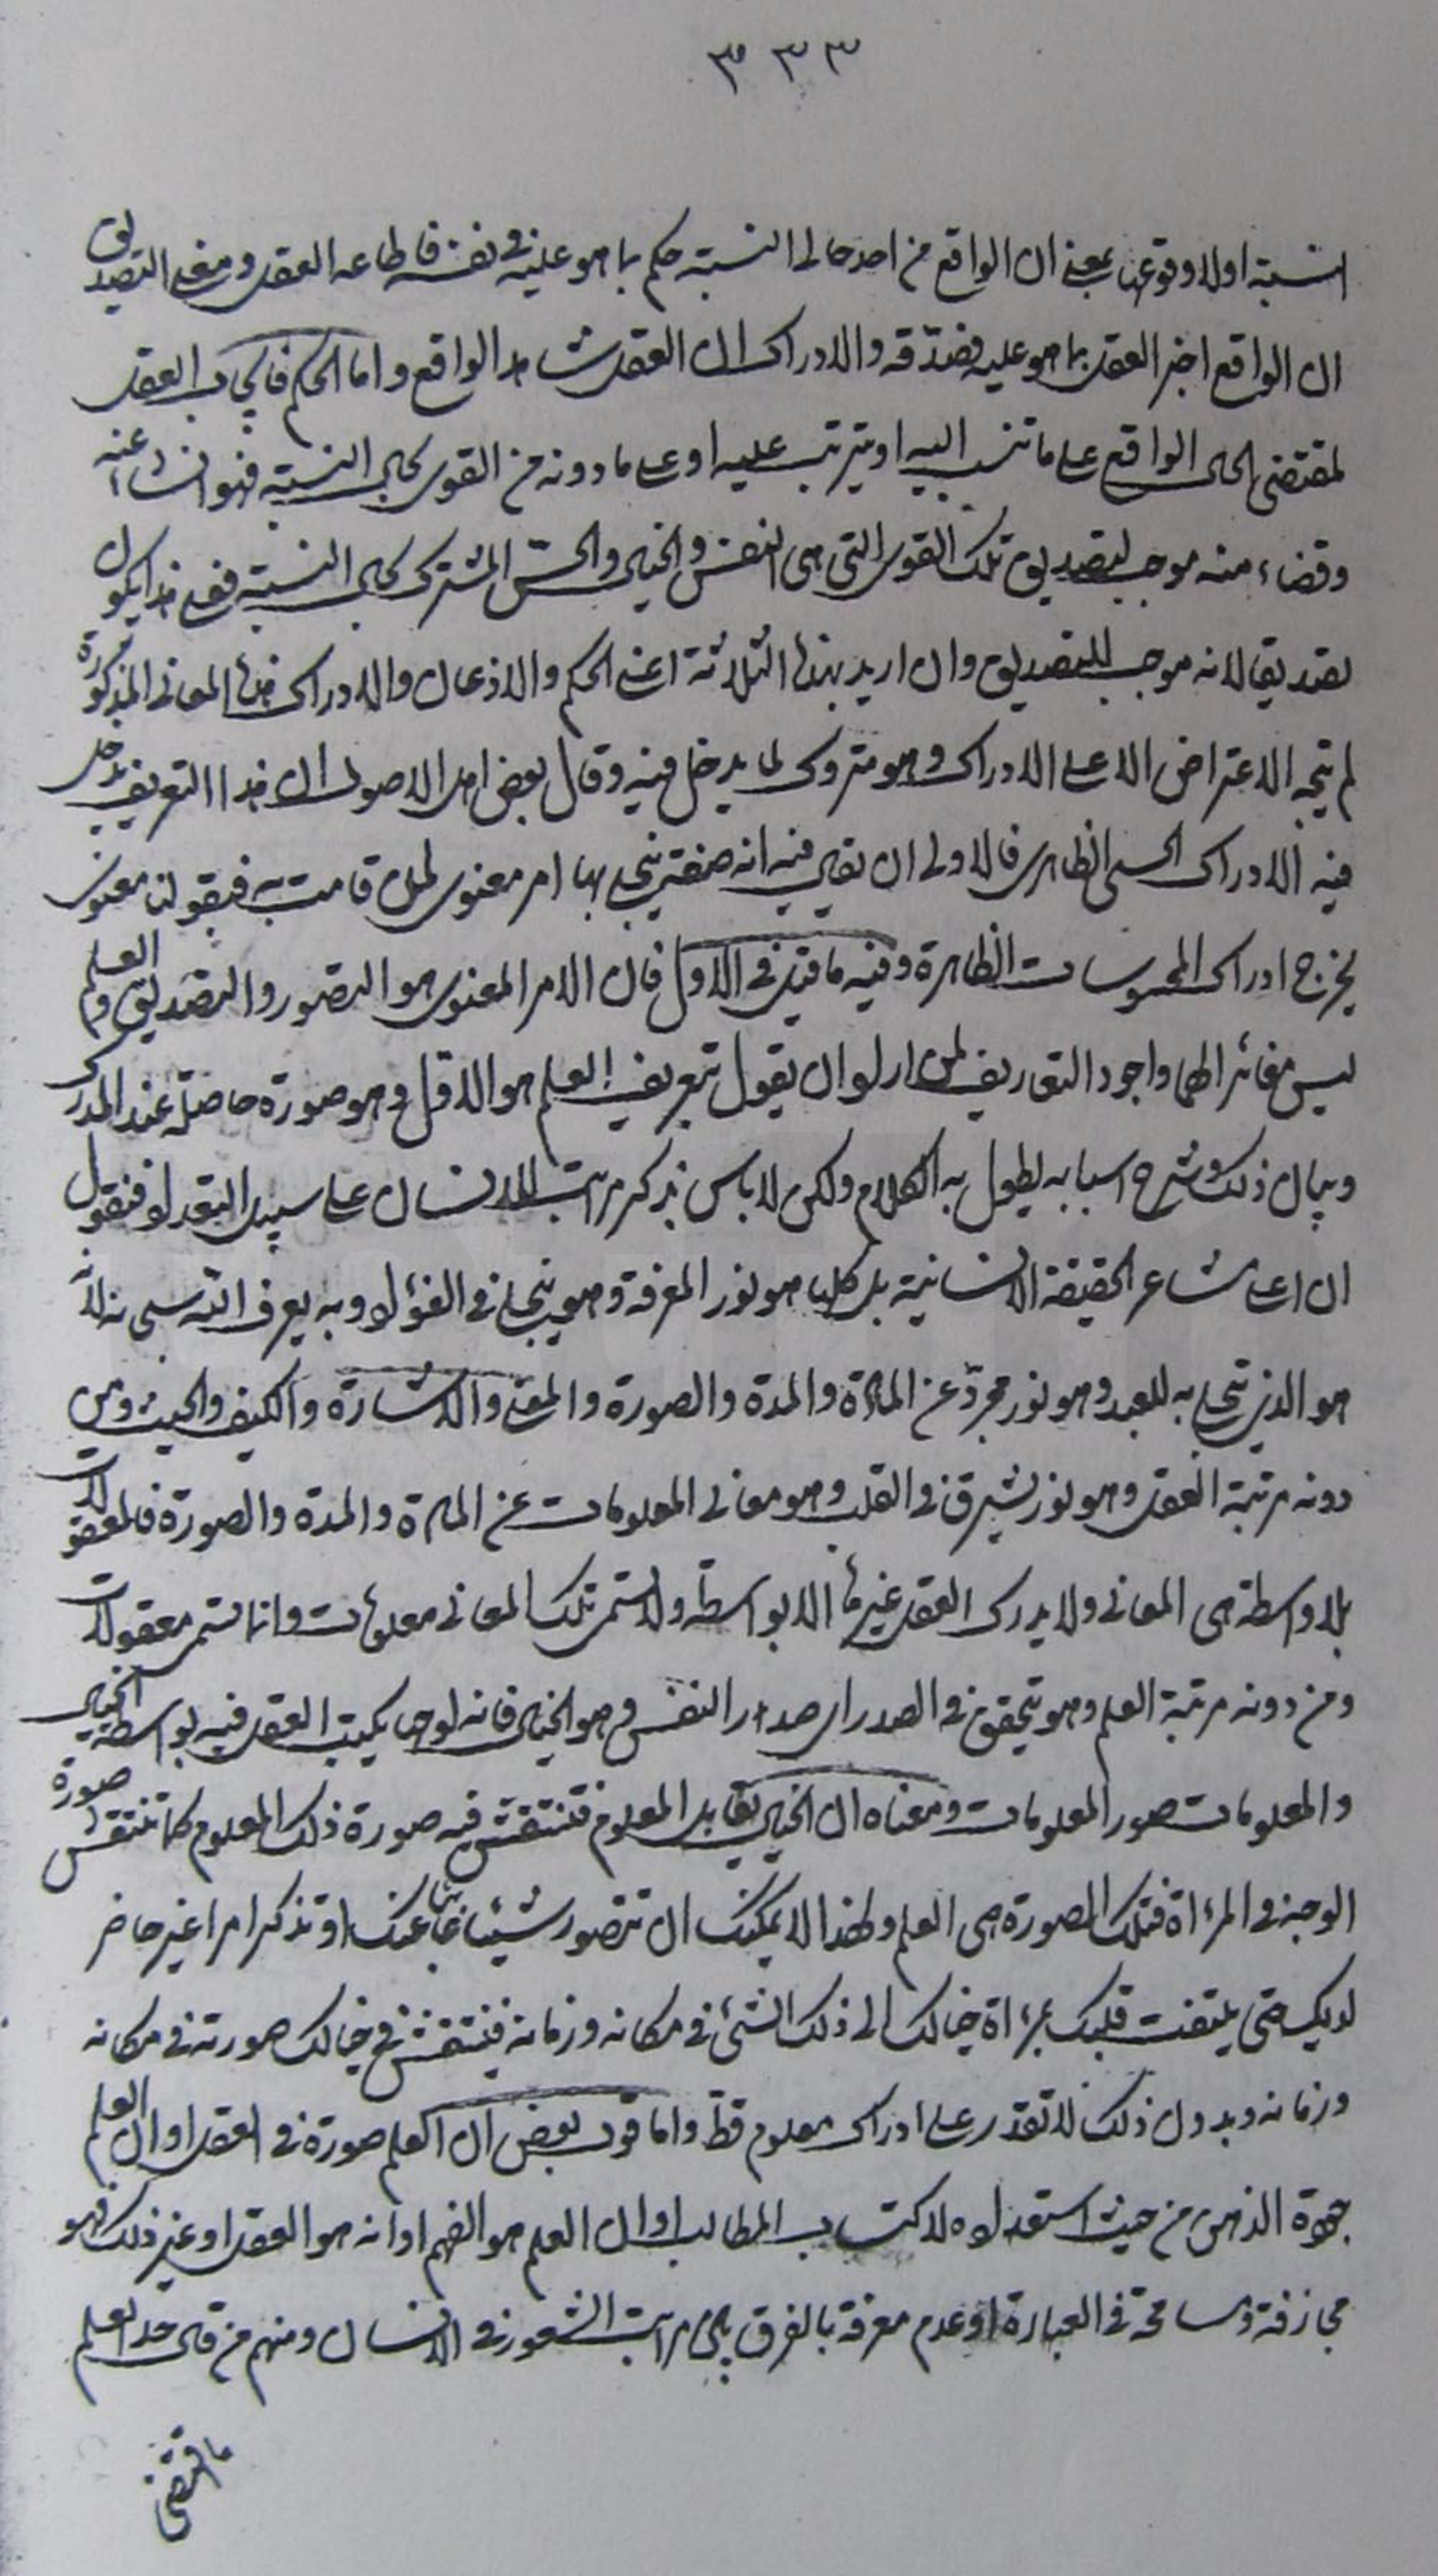 ٣٣٣
النسبة اولا وقوعها بمعنى ان الواقع من احد حالى النسبة حكم بما هو عليه فى نفسه فاطاعه العقل ومعنى التصديق
ان الواقع اخبر العقل بما هو عليه فصدّقه والادراك ان العقل شاهد الواقع واما الحكم فايجاب العقل
لمقتضى الحال الواقع على ما تنسب اليه او يترتب عليه او على ما دونه من القوى بحال النسبة فهو انشاء عنه
وقضاء منه موجب لتصديق تلك القوى التى هى النفس والخيال والحسّ المشترك بحال النسبة فعلى هذا يكون
تصديقا لانه موجب للتصديق وان اريد بهذه الثلاثة اعنى الحكم والاذعان والادراك هذه المعانى المذكورة
لم يتجه الاعتراض الا على الادراك وهو متروك لما يدخل فيه وقال بعض اهل الاصول ان هذا التعريف يدخل
فيه الادراك الحسى الظاهرى فالاولى ان يقال فيه انه صفة يتجلى بها امر معنوى لمن قامت به فبقولنا معنوى
يخرج ادراك المحسوسات الظاهرة وفيه ما قيل فى الاول فان الامر المعنوى هو التصور والتصديق والعلم
ليس مغائرا لهما واجود التعاريف لمن اراد ان يقول بتعريف العلم هو الاول وهو صورة حاصلة عند المدرك
وبيان ذلك وشرح اسبابه يطول به الكلام ولكن لا باس بذكر مراتب للانسان على سبيل التعداد فنقول
ان اعلى مشاعر الحقيقة الانسانية بل كلها هو نور المعرفة وهو يتجلى فى الفؤاد وبه يعرف الله سبحانه لانه
هو الذى تجلى به للعبد وهو نور مجرّد عن المادة والمدة والصورة والمعنى والاشارة والكيف والحيث ومن
دونه مرتبة العقل وهو نور يشرق فى القلب وهو معانى المعلومات عن المادة والمدة والصورة فالمعقولات
بلا واسطة هى المعانى ولا يدرك العقل غيرها الا بواسطة ولا تسمى تلك المعانى معلومات وانما تسمى معقولات
ومن دونه مرتبة العلم وهو يتحقق فى الصدر اى صدر النفس وهو الخيال فانه لوح يكتب العقل فيه بواسطة الخيال
والمعلومات صور المعلومات ومعناه ان الخيال يقابل المعلوم فتنتقش فيه صورة ذلك المعلوم كما تنتقش صورة
الوجه فى المرءاة فتلك الصورة هى العلم ولهذا لا يمكنك ان تتصور شيئا غائبا عنك او تذكر امرا غير حاضر
لديك حتى يلتفت قلبك بمرءاة خيالك الى ذلك الشئ فى مكانه وزمانه فينتقش فى خيالك صورته فى مكانه
وزمانه وبدون ذلك لا تقدر على ادراك معلوم قطّ واما قول بعض ان العلم صورة فى العقل او ان العلم
جودة الذهن من حيث استعداده لاكتساب المطالب او ان العلم هو الفهم او انه هو العقل او غير ذلك فهو
مجازفة ومسامحة فى العبارة او عدم معرفة بالفرق بين مراتب الشعور فى الانسان ومنهم من قال حد العلم
ما اقتضى